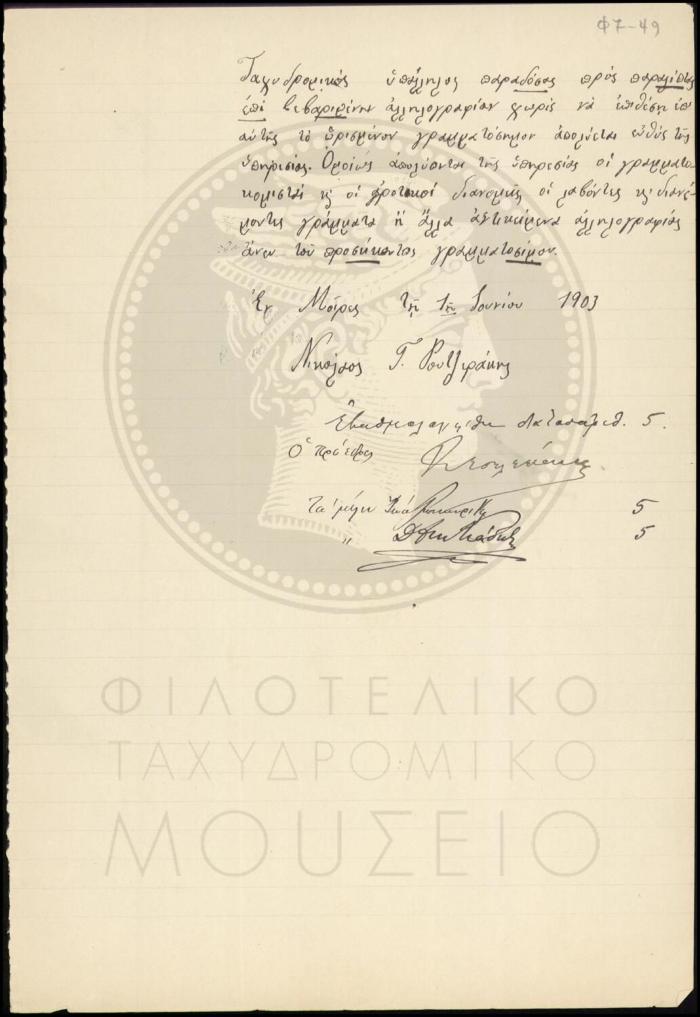 Φ7-49
Ταχυδρομικός ὑπάλληλος παραδόσας πρός παραλήπτας
ἐπί βεβαριμένην ἀλληλογραφίαν χωρίς νά ἐπιθέσῃ ἐπ'
αὐτῆς τό ὡρισμένον γραμματόσημον ἀπολύεται εὐθύς τῆς
ὑπηρεσίας. Ὁμοίως ἀπολύονται τῆς ὑπηρεσίας οἱ γραμματο
κομισταί κ οἱ ἀγροτικοί διανομεῖς οἱ λαβόντες κ διανέ
μοντες γράμματα ἤ ἄλλα ἀντικείμενα ἀλληλογραφίας
ἄνευ τοῦ προσήκοντος γραμματοσίμου.
Ἐν Μοίρες τῇ 1ῃ Ἰουνίου 1903
Νικόλαος Γ. Ρουτζιράκης
Ἐβαθμολογήθη 5.
Ὁ πρόεδρος
Τά μέλη 5
" 5
ΦΙΛΟΤΕΛΙΚΟ
ΤΑΧΥΔΡΟΜΙΚΟ
ΜΟΥΣΕΙΟ